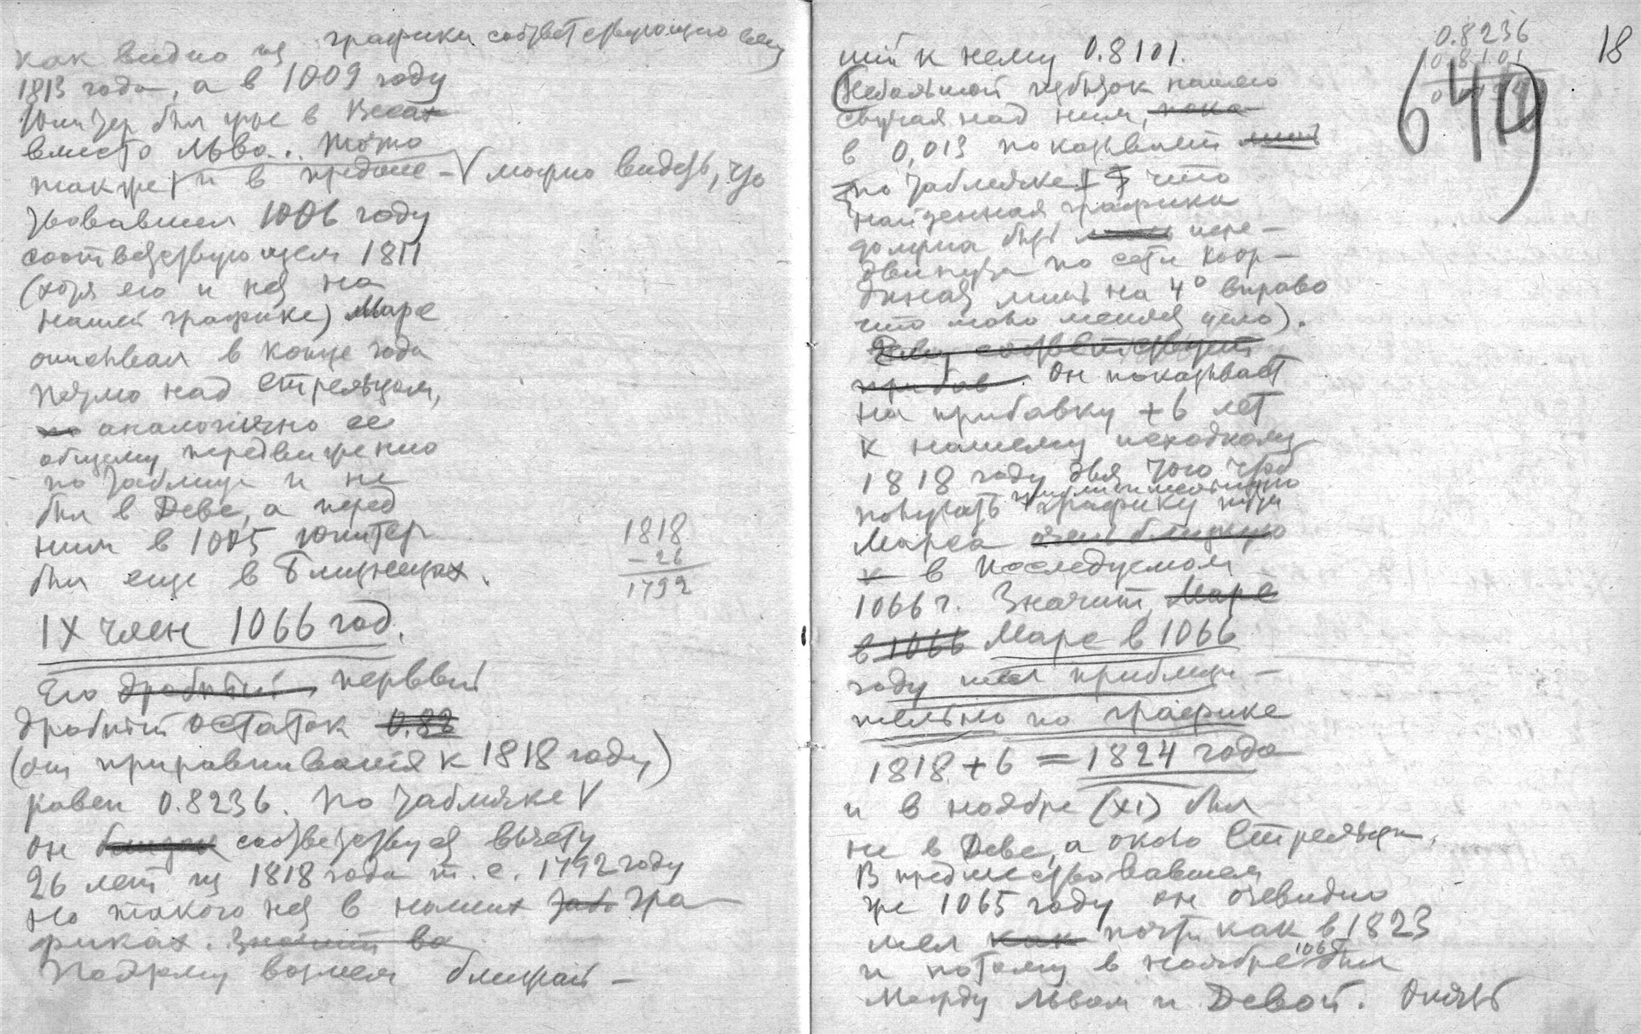 как видно из графики соответствующего ему
1813 года, а в 1009 году
Юпитер был уже в Весах
вместо Льва. Точно
также и в предше- V можно видеть, что
ствовавшем 1006 году
соответствующем 1811
(хотя его и нет на
нашей графике) Марс
описывал в конце года
петлю над Стрельцом,
аналогично ее
общему передвижению
по таблице и не
был в Деве, а перед
ним в 1005 Юпитер
был еще в Близнецах.
1818
-26
1792
IX член 1066 год.
Его дробный первый
дробный остаток 0.82
(от приравнивания к 1818 году)
равен 0.8236. По табличке V
он близок соответствует вычету
26 лет из 1818 года т.е. 1792 году
Но такого нет в наших гра
фиках. Значит во
Поэтому возьмем ближай-
18
0.8236
0.8101
649
ший к нему 0.8101.
(Небольшой избыток нашего
случая над ним, пока-
в 0,013 показывает лишь
по табличке, что
найденная графика
должна быть пере-
двинута по сети коор-
динат лишь на 4° вправо
что мало меняет дело).
Ему соответствует
прибав Он показывает
на прибавку +6 лет
к нашему исходному
1818 году для того чтоб
получить приблизительную графику пути
Марса очень близкую
к в последуемом
1066 г. Значит, Марс
в 1066 Марс в 1066
году шел приблизи-
тельно по графике
1818 + 6 = 1824 года
и в ноябре (XI) был
не в Деве, а около Стрельца.
В предшествовавшем
же 1065 году он очевидно
шел как почти как в 1823
и потому в ноябре 1065 был
между Львом и Девой. Опять